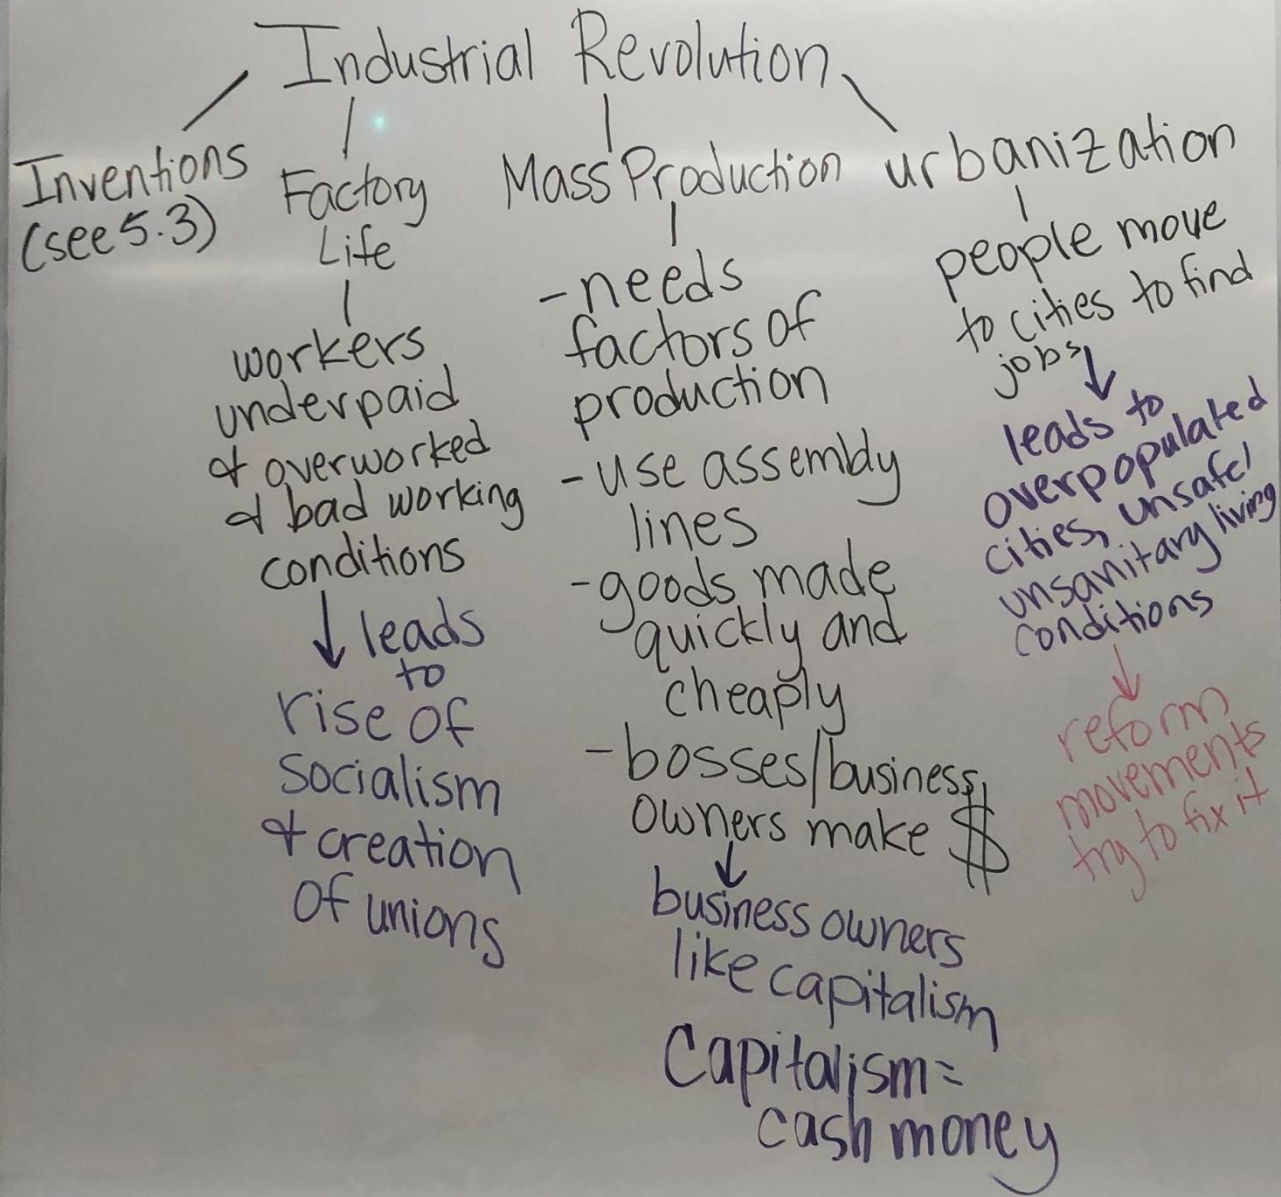 Industrial Revolution
Inventions
(see 5.3)
Factory
Life
workers
underpaid
& overworked
& bad working
conditions
↓ leads
to
rise of
socialism
& creation
of unions
Mass Production
- needs
factors of
production
- use assembly
lines
- goods made
quickly and
cheaply
- bosses/business
owners make $
↓
business owners
like capitalism
Capitalism =
cash money
urbanization
people move
to cities to find
jobs ↓
leads to
overpopulated
cities, unsafe/
unsanitary living
conditions
↓
reform
movements
try to fix it